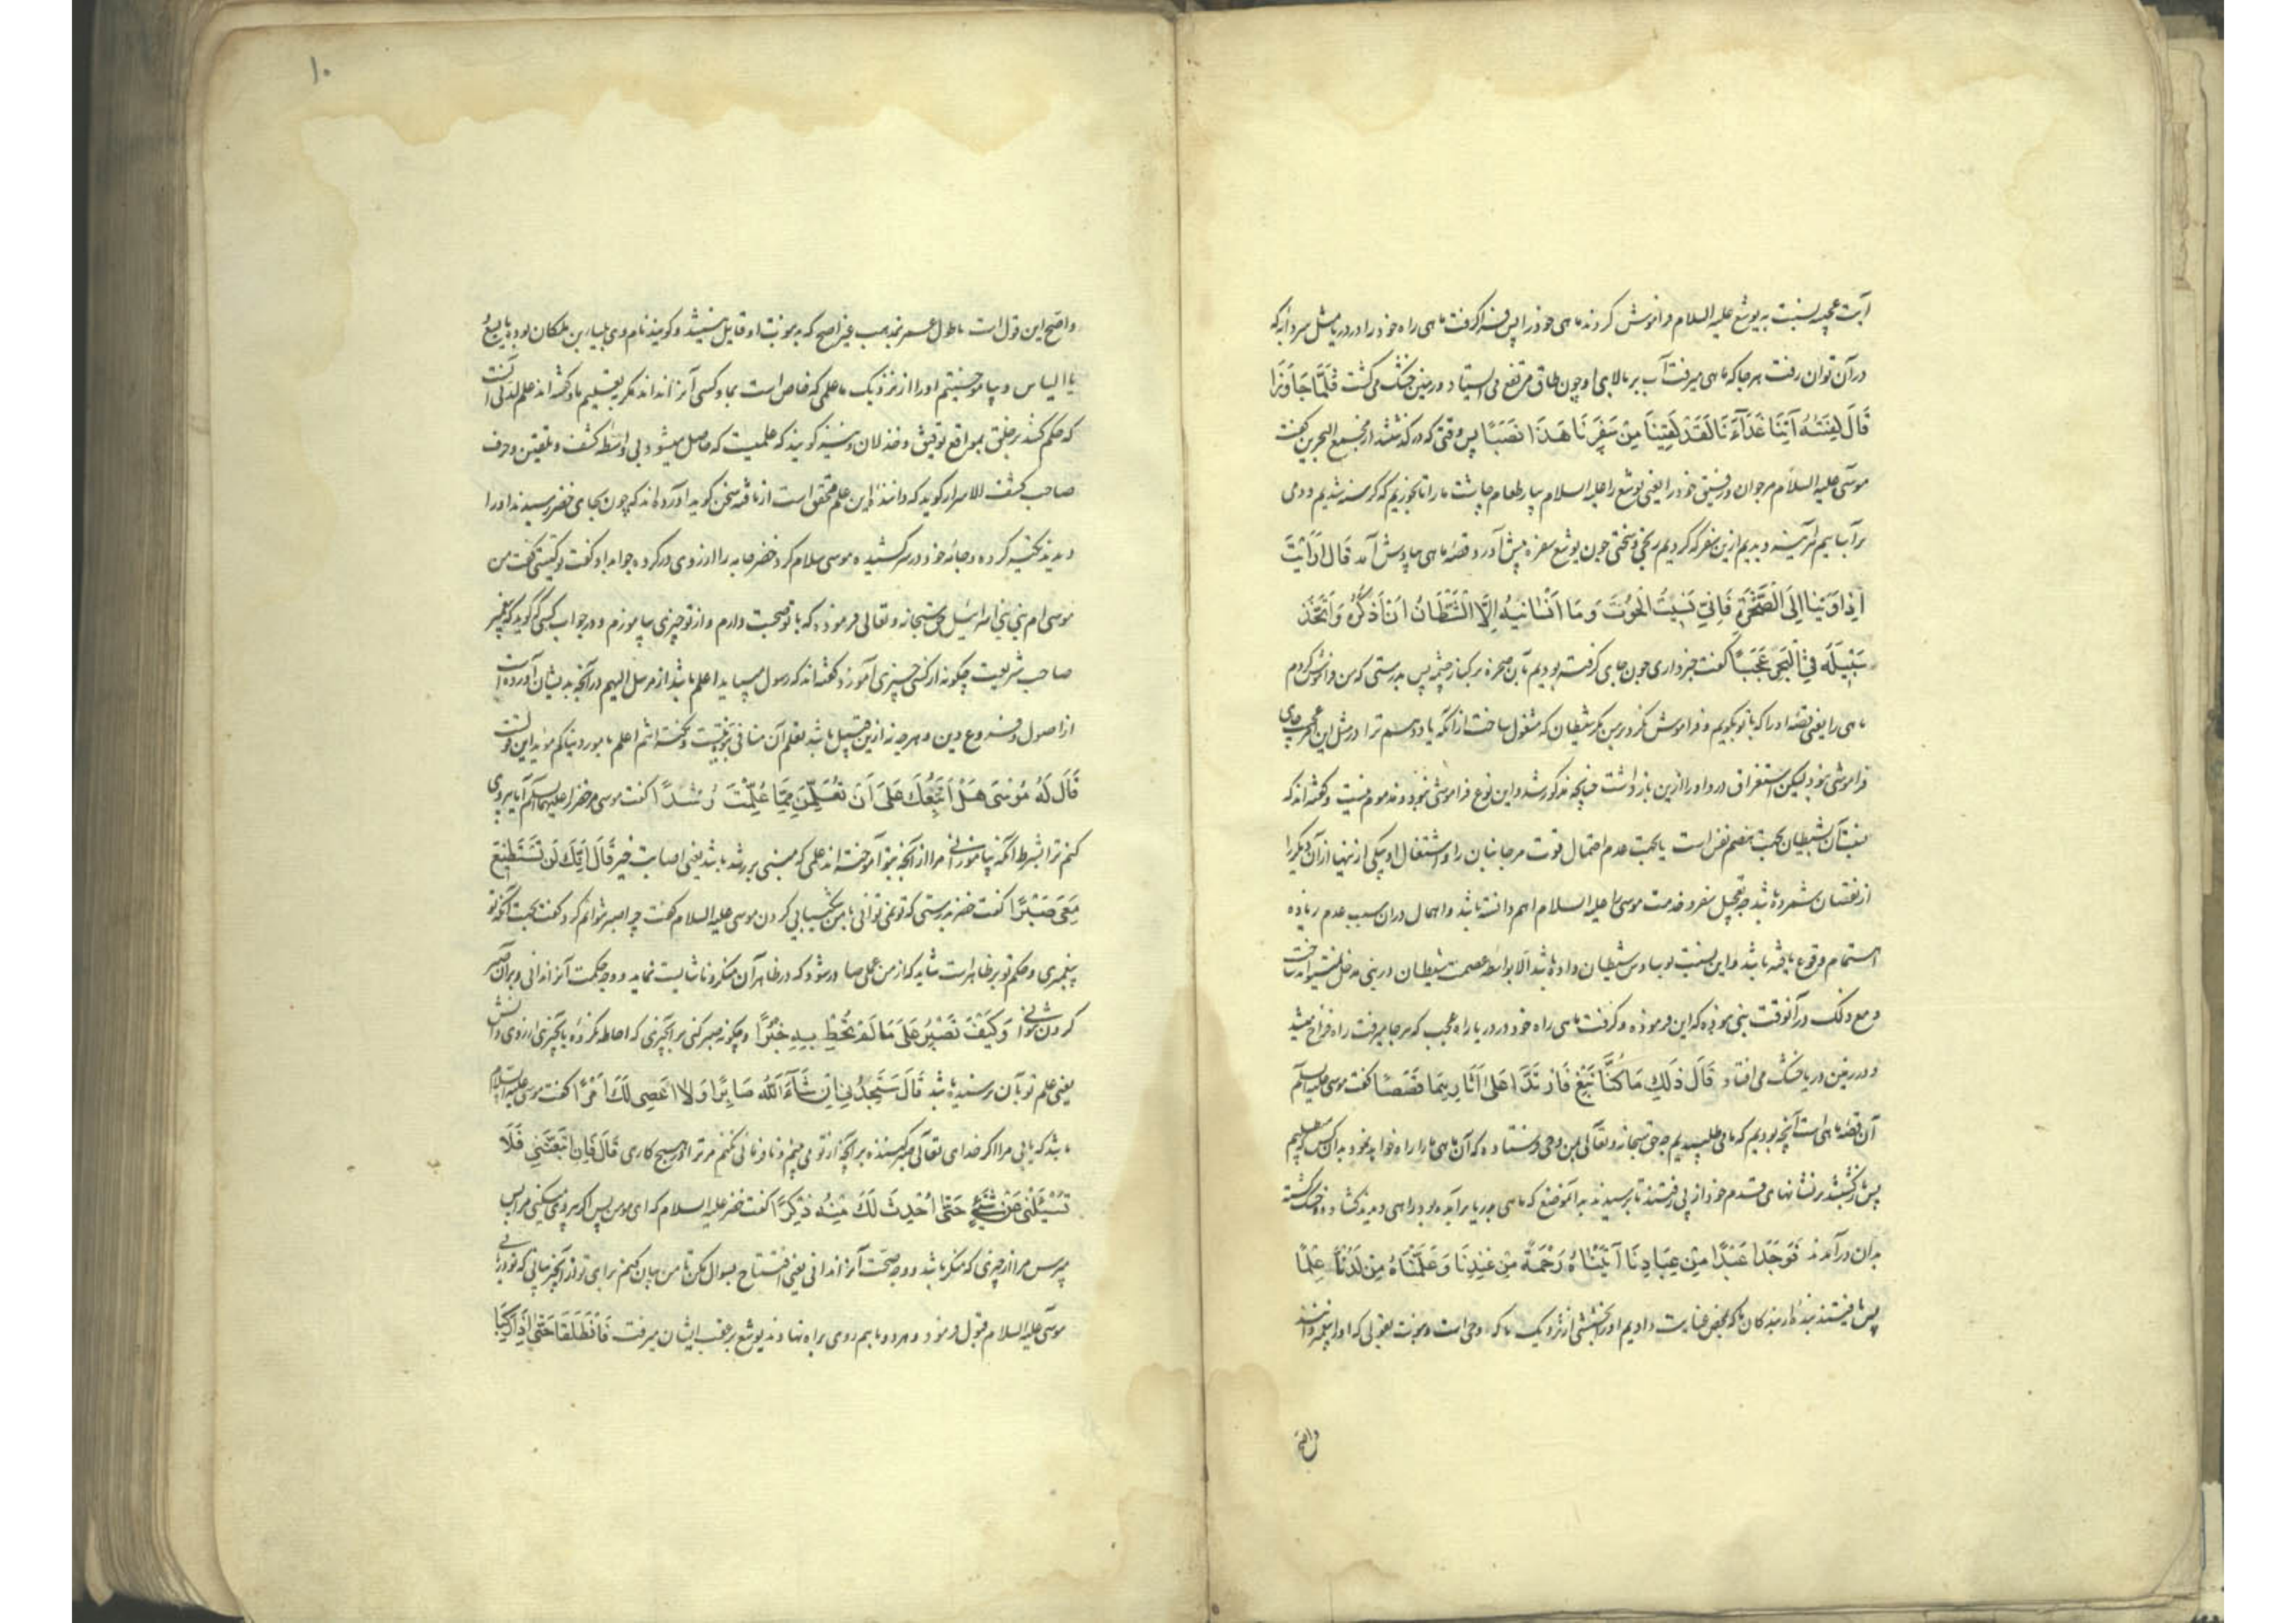 آیت عجیبه نسبت به یوشع علیه السلام فراموش کردند ماهی خود را پس فرا گرفت ماهی راه خود را در دریا مثل سردابه که
در آن توان رفت هر جا که ماهی میرفت آب بر بالای او چون طاق مرتفع می ایستاد و زمین خشک می گشت فَلَمَّا جَاوَزَا
قَالَ لِفَتَیٰهُ آتِنَا غَدَآءَنَا لَقَدْ لَقِینَا مِنْ سَفَرِنَا هَذَا نَصَبًا پس وقتی که در گذشتند از مجمع البحرین گفت
موسی علیه السلام مر جوان و رفیق خود را یعنی یوشع را علیه السلام بیار طعام چاشت ما را تا بخوریم که گرسنه شدیم و دمی
برآساییم هر آینه دیدیم ازین سفر که کردیم رنجی و سختی چون یوشع سفره پیش آورد قصه ماهی بیادش آمد قَالَ اَرَاَیْتَ
اِذْ اَوَیْنَا اِلَی الصَّخْرَةِ فَاِنِّی نَسِیتُ الْحُوتَ وَمَا اَنْسَانِیهُ اِلَّا الشَّیْطَانُ اَنْ اَذْکُرَهُ وَاتَّخَذَ
سَبِیلَهُ فِی الْبَحْرِ عَجَبًا گفت خبر داری چون جای گرفته بودیم بآن صخره بر کنار چشمه پس بدرستی که من فراموش کردم
ماهی را یعنی قصه او را که با تو بگویم و فراموش نکرد بر من مگر شیطان که مشغول ساخت از آنکه یاد دهم ترا و در مثل این
فراموشی نبود لیکن استغراق در او را ازین باز داشت چنانچه مذکور شد و این نوع فراموشی مذموم نیست و گفته اند که
نسبت آن بشیطان بجهت هضم نفس است یا بجهت عدم احتمال قوت مر جانبان را و اشتغال او بیکی از نیها از آن دیگر را
از نقصان شمرده باشد چه تعجیل سفر و خدمت موسی را علیه السلام اهم دانسته باشد و اهمال در آن سبب عدم زیاده
اهتمام وقوع یافته باشد و این نسبت بوساوس شیطان داده باشد الا بواسطه عصمت شیطان در نبی مدخل
و مع ذلک در آنوقت نبی نبوده که این فرموده و گرفت ماهی راه خود در دریا راه عجب که هر جا میرفت راه فراخ میشد
و در زمین دریا خشک می افتاد قَالَ ذَلِکَ مَا کُنَّا نَبْغِ فَارْتَدَّا عَلَی آثَارِهِمَا قَصَصًا گفت موسی علیه السلام
آن قصه ماهی است آنچه بودیم که ما می طلبیدیم چه حق سبحانه و تعالی بمن وحی فرستاده که آن ماهی ما را راه خواهد نمود بدانکس که می طلبیم
پس بازگشتند بر نشانهای قدم خود از پی رفتند تا برسیدند بدآنموضع که ماهی بدریا برآمده بود راهی دیدند گشاده و خشک گشته
بدان درآمدند فَوَجَدَا عَبْدًا مِنْ عِبَادِنَا آتَیْنَاهُ رَحْمَةً مِنْ عِنْدِنَا وَعَلَّمْنَاهُ مِنْ لَدُنَّا عِلْمًا
پس یافتند بنده از بندگان ما که بمحض عنایت دادیم او را بخششی از نزدیک ما که وحی است و نبوت بقولی که او را پیغمبر دانند
واصح
۱۰
واصح این قول است یا طول عمر بمذهب غیر اصح که بر نبوت او قایل نیستند و گویند نام وی بلیا بن ملکان بود یا یسع
یا الیاس و بیاموختیم او را از نزدیک ما علمی که خاص است بما و کسی آنرا نداند مگر بتعلیم ما و گفته اند علم لدنی آنست
که حکم کنند بر خلق بمواقع توفیق و خذلان و نیز گویند که علمیست که حاصل میشود بی واسطه کشف و تلقین و حرف
صاحب کشف الاسرار گوید که داننده این علم محقق است از یافته سخن گوید آورده اند که چون بجای خضر رسیدند او را
دیدند تکیه کرده و جامه خود در سر کشیده موسی سلام کرد خضر جامه را از روی دور کرده جواب داد و گفت تو کیستی گفت من
موسی ام نبی بنی اسرائیل حق سبحانه و تعالی فرموده که با تو صحبت دارم و از تو چیزی بیاموزم و در جواب کسی که گوید که پیغمبر
صاحب شریعت چگونه از کسی چیزی آموزد گفته اند که رسول میباید اعلم باشد از مرسل الیهم در آنچه بدیشان آورده است
از اصول و فروع دین و هر چه نه ازین قبیل باشد تعلم آن منافی نبوت نیست و نکته انتم اعلم بامور دنیاکم مؤید این قولست
قَالَ لَهُ مُوسَی هَلْ اَتَّبِعُکَ عَلَی اَنْ تُعَلِّمَنِ مِمَّا عُلِّمْتَ رُشْدًا گفت موسی مر خضر را علیهما السلام آیا پیروی
کنم ترا بشرط آنکه بیاموزانی مرا از آنچه بتو آموخته اند علمی که مبنی بر رشد باشد یعنی اصابت خیر قَالَ اِنَّکَ لَنْ تَسْتَطِیعَ
مَعِیَ صَبْرًا گفت خضر بدرستی که تو نمی توانی با من شکیبایی کردن موسی علیه السلام گفت چرا صبر نتوانم کرد گفت بجهت آنکه تو
پیغمبری و حکم تو بر ظاهر است شاید که از من عملی صادر شود که در ظاهر آن منکر و ناشایست نماید و وجه حکمت آنرا ندانی و بر آن صبر
کردن نتوانی وَکَیْفَ تَصْبِرُ عَلَی مَا لَمْ تُحِطْ بِهِ خُبْرًا و چگونه صبر کنی بر آنچیزی که احاطه نکرده بآنچیزی از روی دانش
یعنی علم تو بآن نرسیده باشد قَالَ سَتَجِدُنِی اِنْ شَآءَ اللّٰهُ صَابِرًا وَلَا اَعْصِی لَکَ اَمْرًا گفت موسی علیه السلام
باشد که یابی مرا اگر خدای تعالی صبر کننده بر آنچه از تو می بینم و نافرمانی نکنم مر ترا در هیچ کاری قَالَ فَاِنِ اتَّبَعْتَنِی فَلَا
تَسْئَلْنِی عَنْ شَیْءٍ حَتّٰی اُحْدِثَ لَکَ مِنْهُ ذِکْرًا گفت خضر علیه السلام که ای موسی پس اگر پیروی میکنی مرا پس
مپرس مرا از چیزی که منکر باشد و وجه صحت آنرا ندانی یعنی افتتاح بسؤال مکن تا من بیان کنم برای تو از آنچیز بیانی که تو دریابی
موسی علیه السلام قبول فرمود و هر دو باهم روی براه نهادند یوشع بر عقب ایشان میرفت فَانْطَلَقَا حَتّٰی اِذَا رَکِبَا